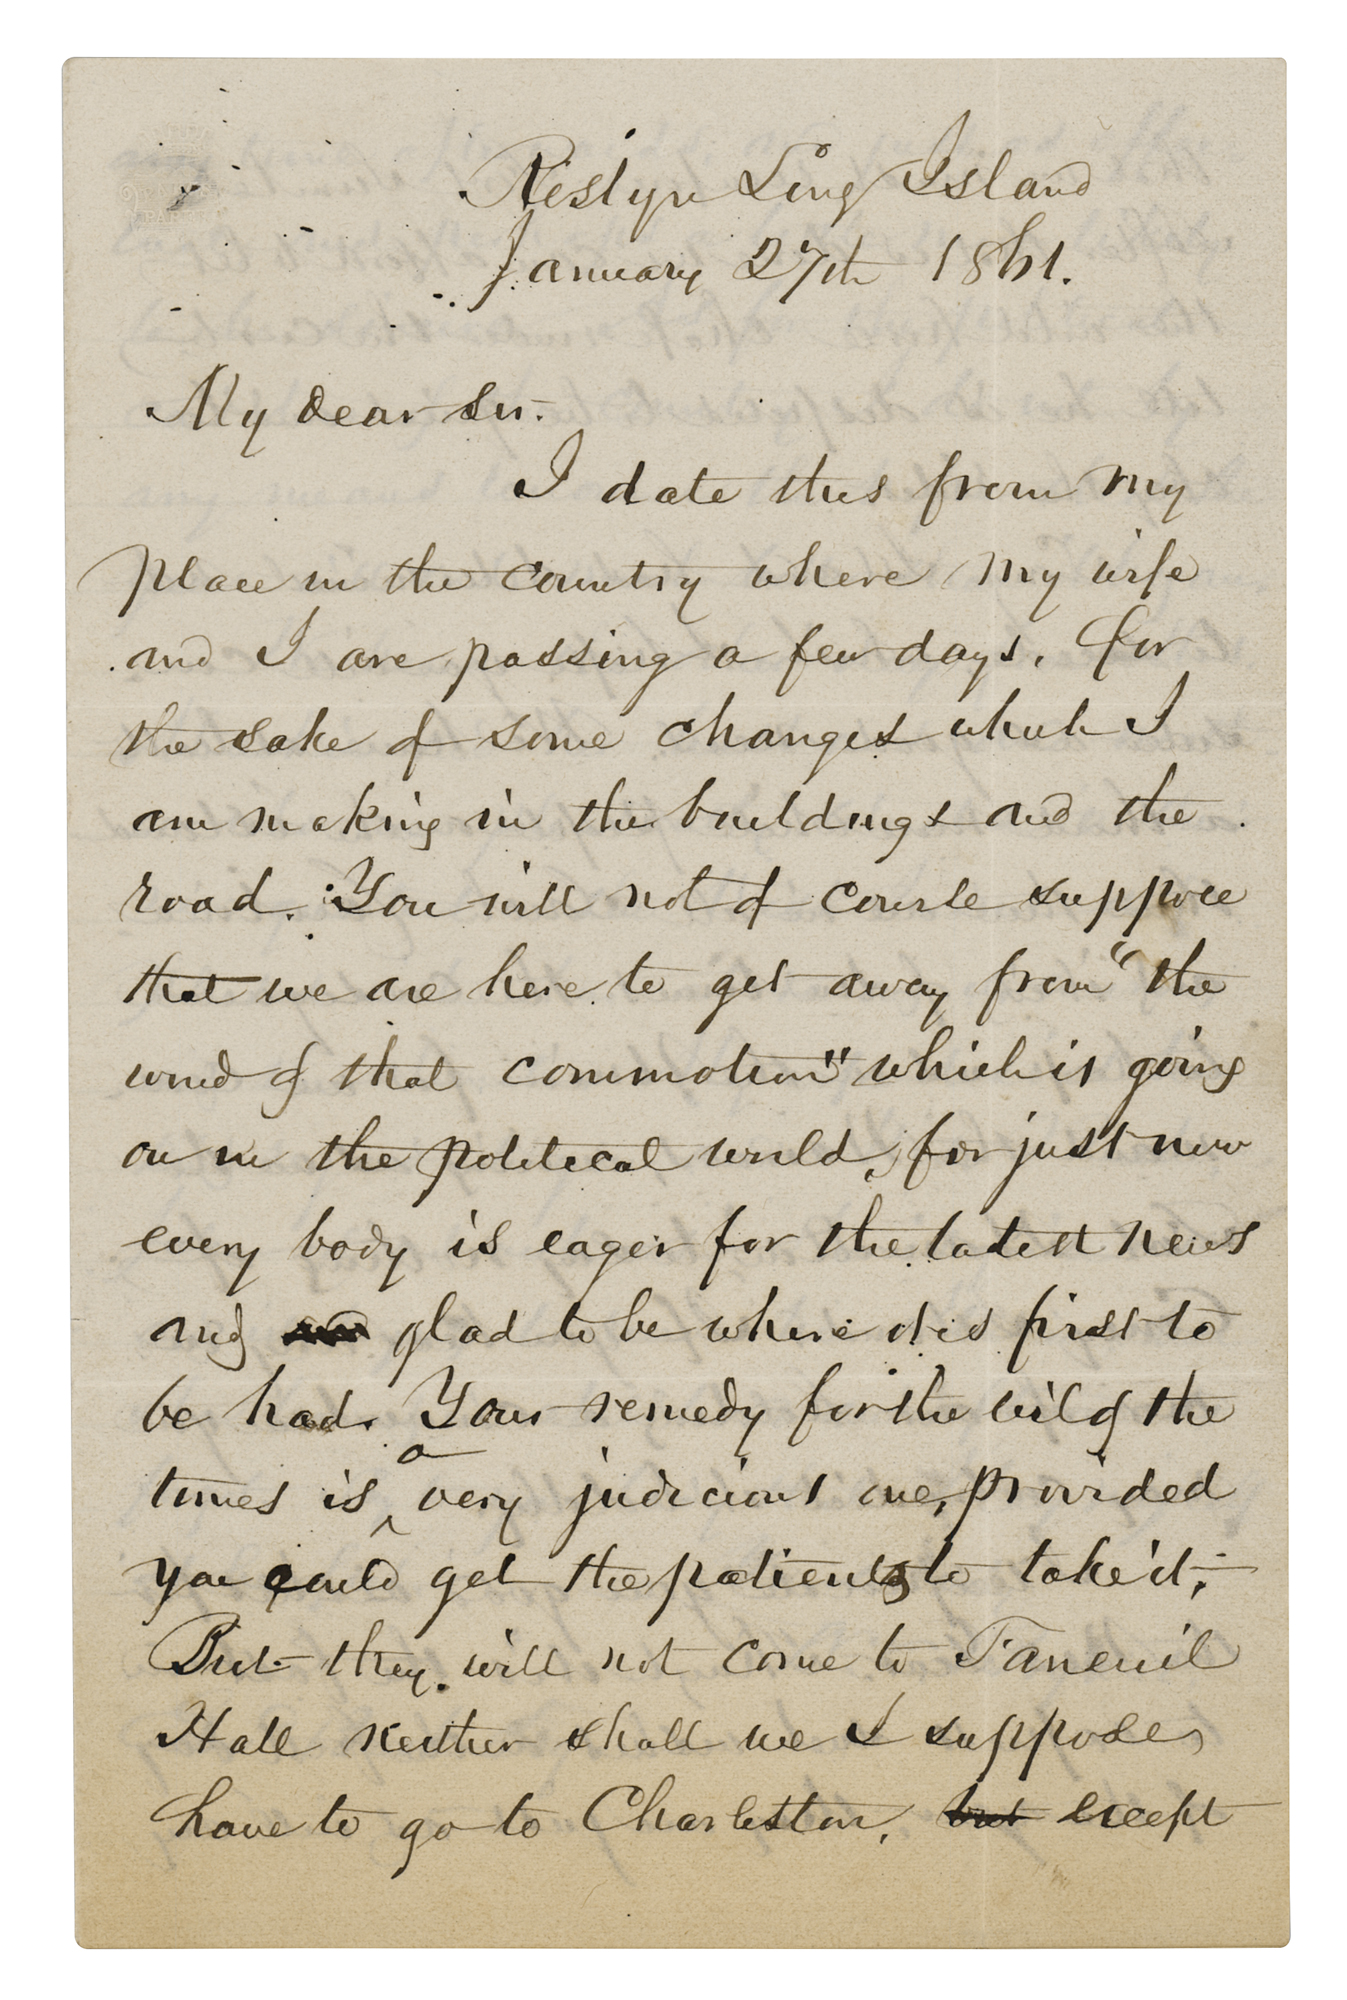 Roslyn Long Island
January 27th 1861.
My dear sir.
I date this from my
place in the country where my wife
and I are passing a few days, for
the sake of some changes which I
am making in the buildings and the
road. You will not of course suppose
that we are here to get away from "the
wind of that commotion" which is going
on in the political world, for just now
every body is eager for the latest news
and glad to be where it is first to
be had. Your remedy for the evil of the
times is a very judicious one, provided
you could get the patients to take it;
But they will not come to Faneuil
Hall neither shall we I suppose,
have to go to Charleston, but except